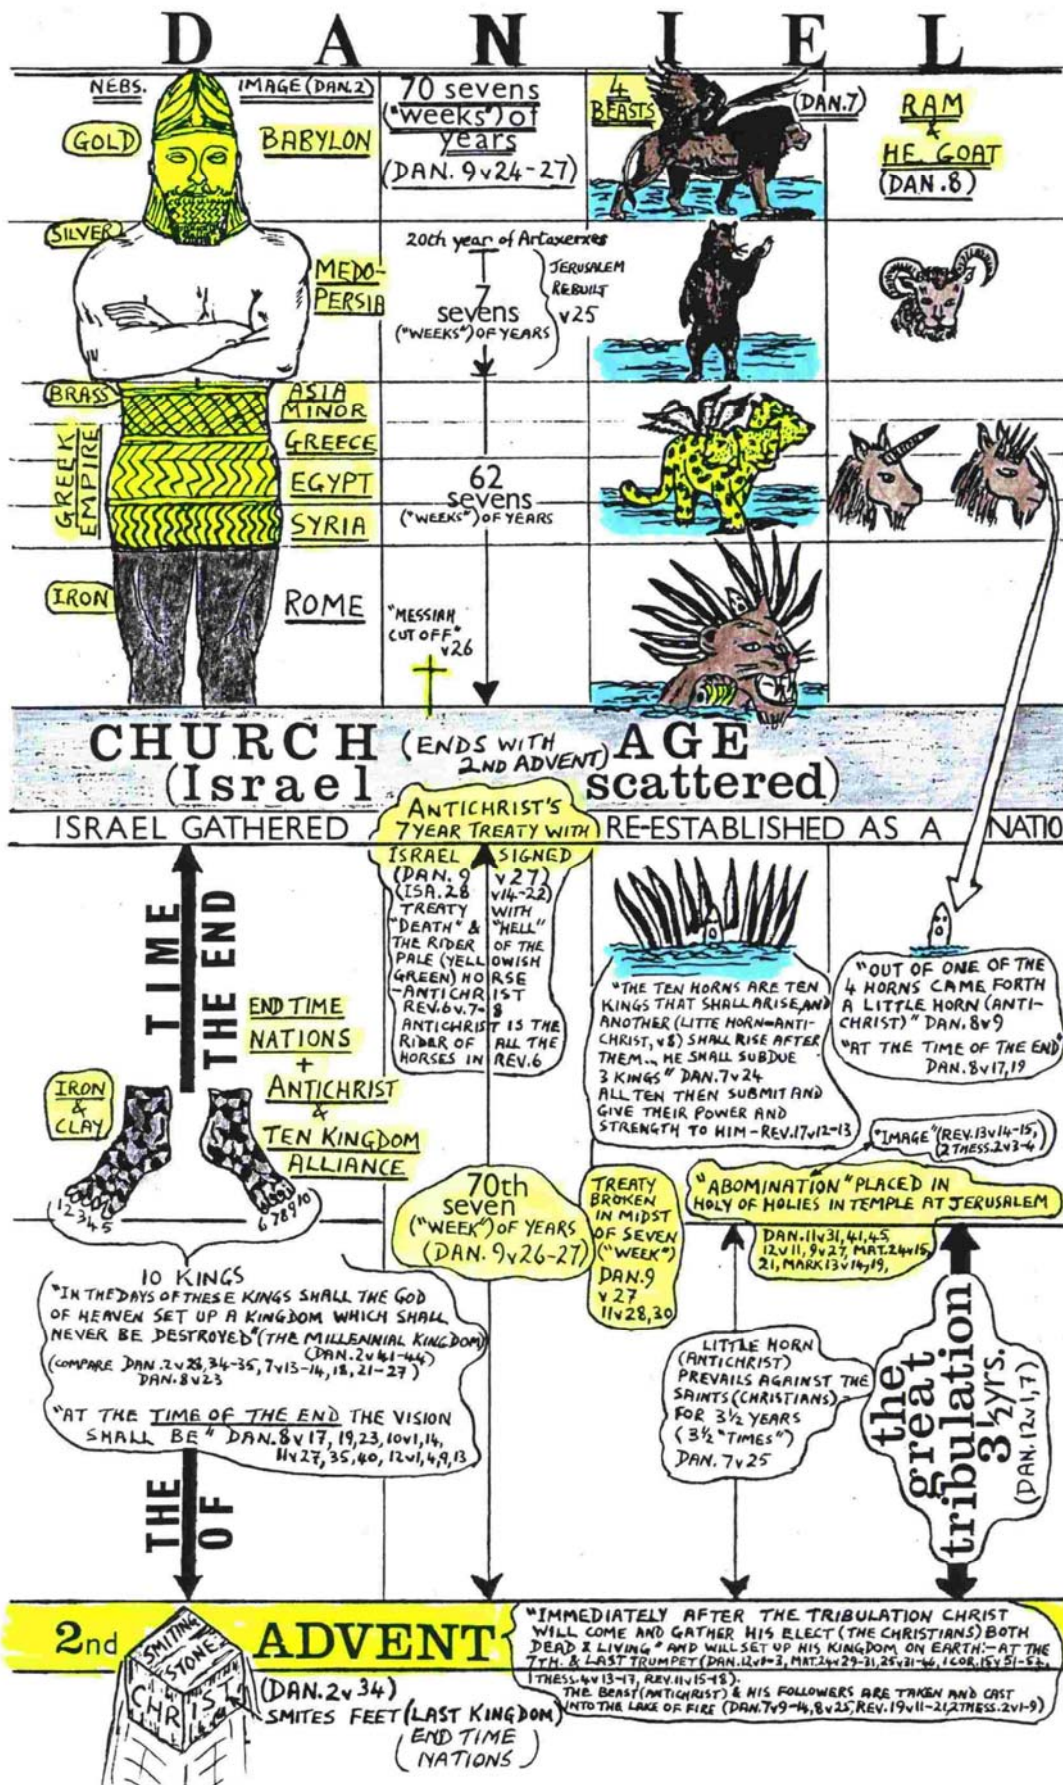 DANIEL
NEBS.
IMAGE (DAN.2)
GOLD
BABYLON
SILVER
MEDO-
PERSIA
BRASS
GREEK
EMPIRE
ASIA
MINOR
GREECE
EGYPT
SYRIA
IRON
ROME
70 sevens
("weeks") of
years
(DAN. 9v24-27)
20th year of Artaxerxes
7
sevens
("WEEKS") OF YEARS
JERUSALEM
REBUILT
v25
62
sevens
("WEEKS") OF YEARS
"MESSIAH
CUT OFF"
v26
4
BEASTS
(DAN.7)
RAM
&
HE. GOAT
(DAN.8)
CHURCH (ENDS WITH AGE
2ND ADVENT)
(Israel scattered)
ISRAEL GATHERED
ANTICHRIST'S
7 YEAR TREATY WITH
RE-ESTABLISHED AS A NATIO
ISRAEL SIGNED
(DAN. 9 v27)
(ISA.28 v14-22)
TREATY WITH
"DEATH" & "HELL"
THE RIDER OF THE
PALE (YELLOWISH
GREEN) HORSE
-ANTICHRIST
REV.6v.7-8
ANTICHRIST IS THE
RIDER OF ALL THE
HORSES IN REV.6
TIME
THE END
END TIME
NATIONS
+
ANTICHRIST
&
TEN KINGDOM
ALLIANCE
IRON
&
CLAY
12345
678910
"THE TEN HORNS ARE TEN
KINGS THAT SHALL ARISE, AND
ANOTHER (LITTE HORN=ANTI-
CHRIST, v8) SHALL RISE AFTER
THEM... HE SHALL SUBDUE
3 KINGS" DAN.7v24
ALL TEN THEN SUBMIT AND
GIVE THEIR POWER AND
STRENGTH TO HIM - REV.17v12-13
"OUT OF ONE OF THE
4 HORNS CAME FORTH
A LITTLE HORN (ANTI-
CHRIST)" DAN.8v9
"AT THE TIME OF THE END"
DAN.8v17,19
"IMAGE" (REV.13v14-15,
(2THESS.2v3-4)
70th
seven
("WEEK") OF YEARS
(DAN. 9v26-27)
TREATY
BROKEN
IN MIDST
OF SEVEN
("WEEK")
DAN.9
v27
11v28,30
"ABOMINATION" PLACED IN
HOLY OF HOLIES IN TEMPLE AT JERUSALEM
DAN.11v31,41,45,
12v11,9v27, MAT.24v15,
21, MARK13v14,19,
10 KINGS
"IN THE DAYS OF THESE KINGS SHALL THE GOD
OF HEAVEN SET UP A KINGDOM WHICH SHALL
NEVER BE DESTROYED" (THE MILLENNIAL KINGDOM)
(DAN.2v41-44)
(COMPARE DAN.2v28,34-35,7v13-14,18,21-27)
DAN.8v23
"AT THE TIME OF THE END THE VISION
SHALL BE" DAN.8v17, 19,23, 10v1,14,
11v27,35,40, 12v1,4,9,13
LITTLE HORN
(ANTICHRIST)
PREVAILS AGAINST THE
SAINTS (CHRISTIANS)-
FOR 3½ YEARS
(3½ "TIMES")
DAN.7v25
the
great
tribulation
3½yrs.
(DAN.12v1,7)
THE
OF
2nd ADVENT
SMITING
STONE
CHRIST
(DAN.2v34)
SMITES FEET (LAST KINGDOM)
(END TIME
NATIONS)
"IMMEDIATELY AFTER THE TRIBULATION CHRIST
WILL COME AND GATHER HIS ELECT (THE CHRISTIANS) BOTH
DEAD & LIVING" AND WILL SET UP HIS KINGDOM ON EARTH:-AT THE
7TH. & LAST TRUMPET (DAN.12v1-3, MAT.24v29-31, 25v31-46, 1COR.15v51-52,
1THESS.4v13-17, REV.11v15-18).
THE BEAST (ANTICHRIST) & HIS FOLLOWERS ARE TAKEN AND CAST
INTO THE LAKE OF FIRE (DAN.7v9-14, 8v25, REV.19v11-21, 2THESS.2v1-9)